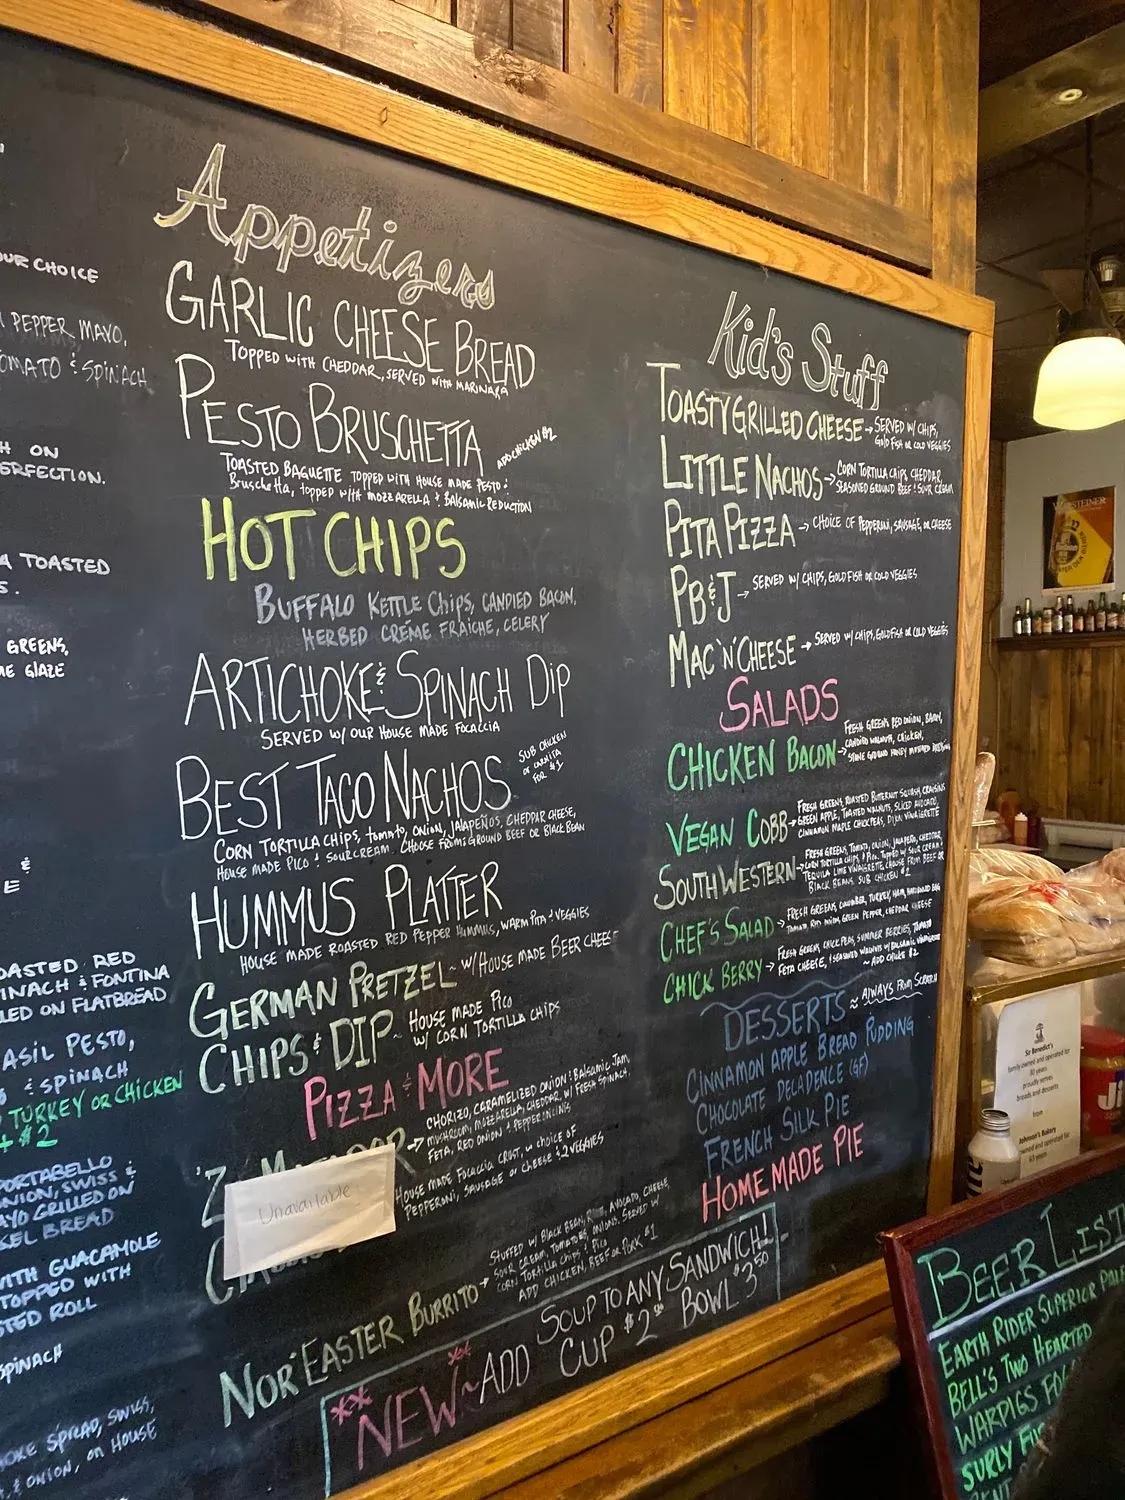 OUR CHOICE
PEPPER, MAYO,
TOMATO & SPINACH
H ON
ERFECTION.
A TOASTED
S.
GREENS,
ME GLAZE
&
E
OASTED RED
INACH & FONTINA
LED ON FLATBREAD
ASIL PESTO,
& SPINACH
TURKEY OR CHICKEN
+$2
PORTABELLO
NION, SWISS &
AYO GRILLED ON
SEL BREAD
WITH GUACAMOLE
TOPPED WITH
STED ROLL
SPINACH
OKE SPREAD, SWISS,
& ONION, ON HOUSE
Appetizers
GARLIC CHEESE BREAD
TOPPED WITH CHEDDAR, SERVED WITH MARINARA
PESTO BRUSCHETTA ADD CHICKEN $2
TOASTED BAGUETTE TOPPED WITH HOUSE MADE PESTO &
Bruschetta, topped with mozzarella & Balsamic Reduction
HOT CHIPS
BUFFALO KETTLE Chips, CANDIED BACON,
HERBED CRÈME FRAICHE, CELERY
ARTICHOKE & SPINACH DIP
SERVED W/ OUR HOUSE MADE FOCACCIA
BEST TACO NACHOS
SUB CHICKEN
OR CARNITA
FOR $2
CORN TORTILLA CHIPS, TOMATO, ONION, JALAPEÑOS, CHEDDAR CHEESE,
HOUSE MADE PICO & SOUR CREAM. CHOOSE FROM: GROUND BEEF OR BLACK BEAN
HUMMUS PLATTER
HOUSE MADE ROASTED RED PEPPER HUMMUS, WARM PITA & VEGGIES
GERMAN PRETZEL ~ W/ HOUSE MADE BEER CHEESE
CHIPS & DIP ~ HOUSE MADE PICO
W/ CORN TORTILLA CHIPS
PIZZA & MORE
CHORIZO, CARAMELIZED ONION & BALSAMIC JAM,
MUSHROOM, MOZZARELLA, CHEDDAR, W/ FRESH SPINACH,
FETA, RED ONION & PEPPERONCINIS
HOUSE MADE FOCACCIA CRUST, W/ CHOICE OF
PEPPERONI, SAUSAGE OR CHEESE & 2 VEGGIES
Unavailable
NOR'EASTER BURRITO →
STUFFED W/ BLACK BEANS, AVOCADO, CHEESE
SOUR CREAM, TOMATOES, ONIONS. SERVED W/
CORN TORTILLA CHIPS & PICO
ADD CHICKEN, BEEF OR PORK $1
**NEW** ~ ADD SOUP TO ANY SANDWICH!
CUP $2 BOWL $3.50
Kid's Stuff
TOASTY GRILLED CHEESE → SERVED W/ CHIPS,
GOLDFISH OR COLD VEGGIES
LITTLE NACHOS → CORN TORTILLA CHIPS, CHEDDAR,
SEASONED GROUND BEEF & SOUR CREAM
PITA PIZZA → CHOICE OF PEPPERONI, SAUSAGE, OR CHEESE
PB & J → SERVED W/ CHIPS, GOLDFISH OR COLD VEGGIES
MAC 'N' CHEESE → SERVED W/ CHIPS, GOLDFISH OR COLD VEGGIES
SALADS
CHICKEN BACON → FRESH GREENS, RED ONION, BACON,
CANDIED WALNUTS, CHICKEN,
STONE GROUND HONEY MUSTARD
VEGAN COBB → FRESH GREENS, ROASTED BUTTERNUT SQUASH, CRAISINS
GREEN APPLE, TOASTED WALNUTS, SLICED AVOCADO,
CINNAMON MAPLE CHICKPEAS, DIJON VINAIGRETTE
SOUTHWESTERN → FRESH GREENS, TOMATO, ONION, JALAPEÑO, CHEDDAR,
CORN TORTILLA CHIPS & PICO. TOPPED W/ SOUR CREAM &
TEQUILA LIME VINAIGRETTE. CHOOSE FROM BEEF OR
BLACK BEANS. SUB CHICKEN $2
CHEF'S SALAD → FRESH GREENS, CUCUMBER, TURKEY, HAM, HARDBOILED EGG
TOMATO, RED ONION, GREEN PEPPER, CHEDDAR CHEESE
CHICK BERRY → FRESH GREENS, CHICK PEAS, SUMMER BERRIES, TOMATO
FETA CHEESE, & SEASONED WALNUTS W/ BALSAMIC VINAIGRETTE
~ ADD CHICKEN $2
DESSERTS ~ ALWAYS FROM SCRATCH
CINNAMON APPLE BREAD PUDDING
CHOCOLATE DECADENCE (GF)
FRENCH SILK PIE
HOMEMADE PIE
Sir Benedict's
family owned and operated for
years
proudly serves
breads and desserts
from
Johnson's Bakery
owned and operated for
years
Jif
BEER LIST
EARTH RIDER SUPERIOR PALE
BELL'S TWO HEARTED
WARPIGS FO
SURLY FU